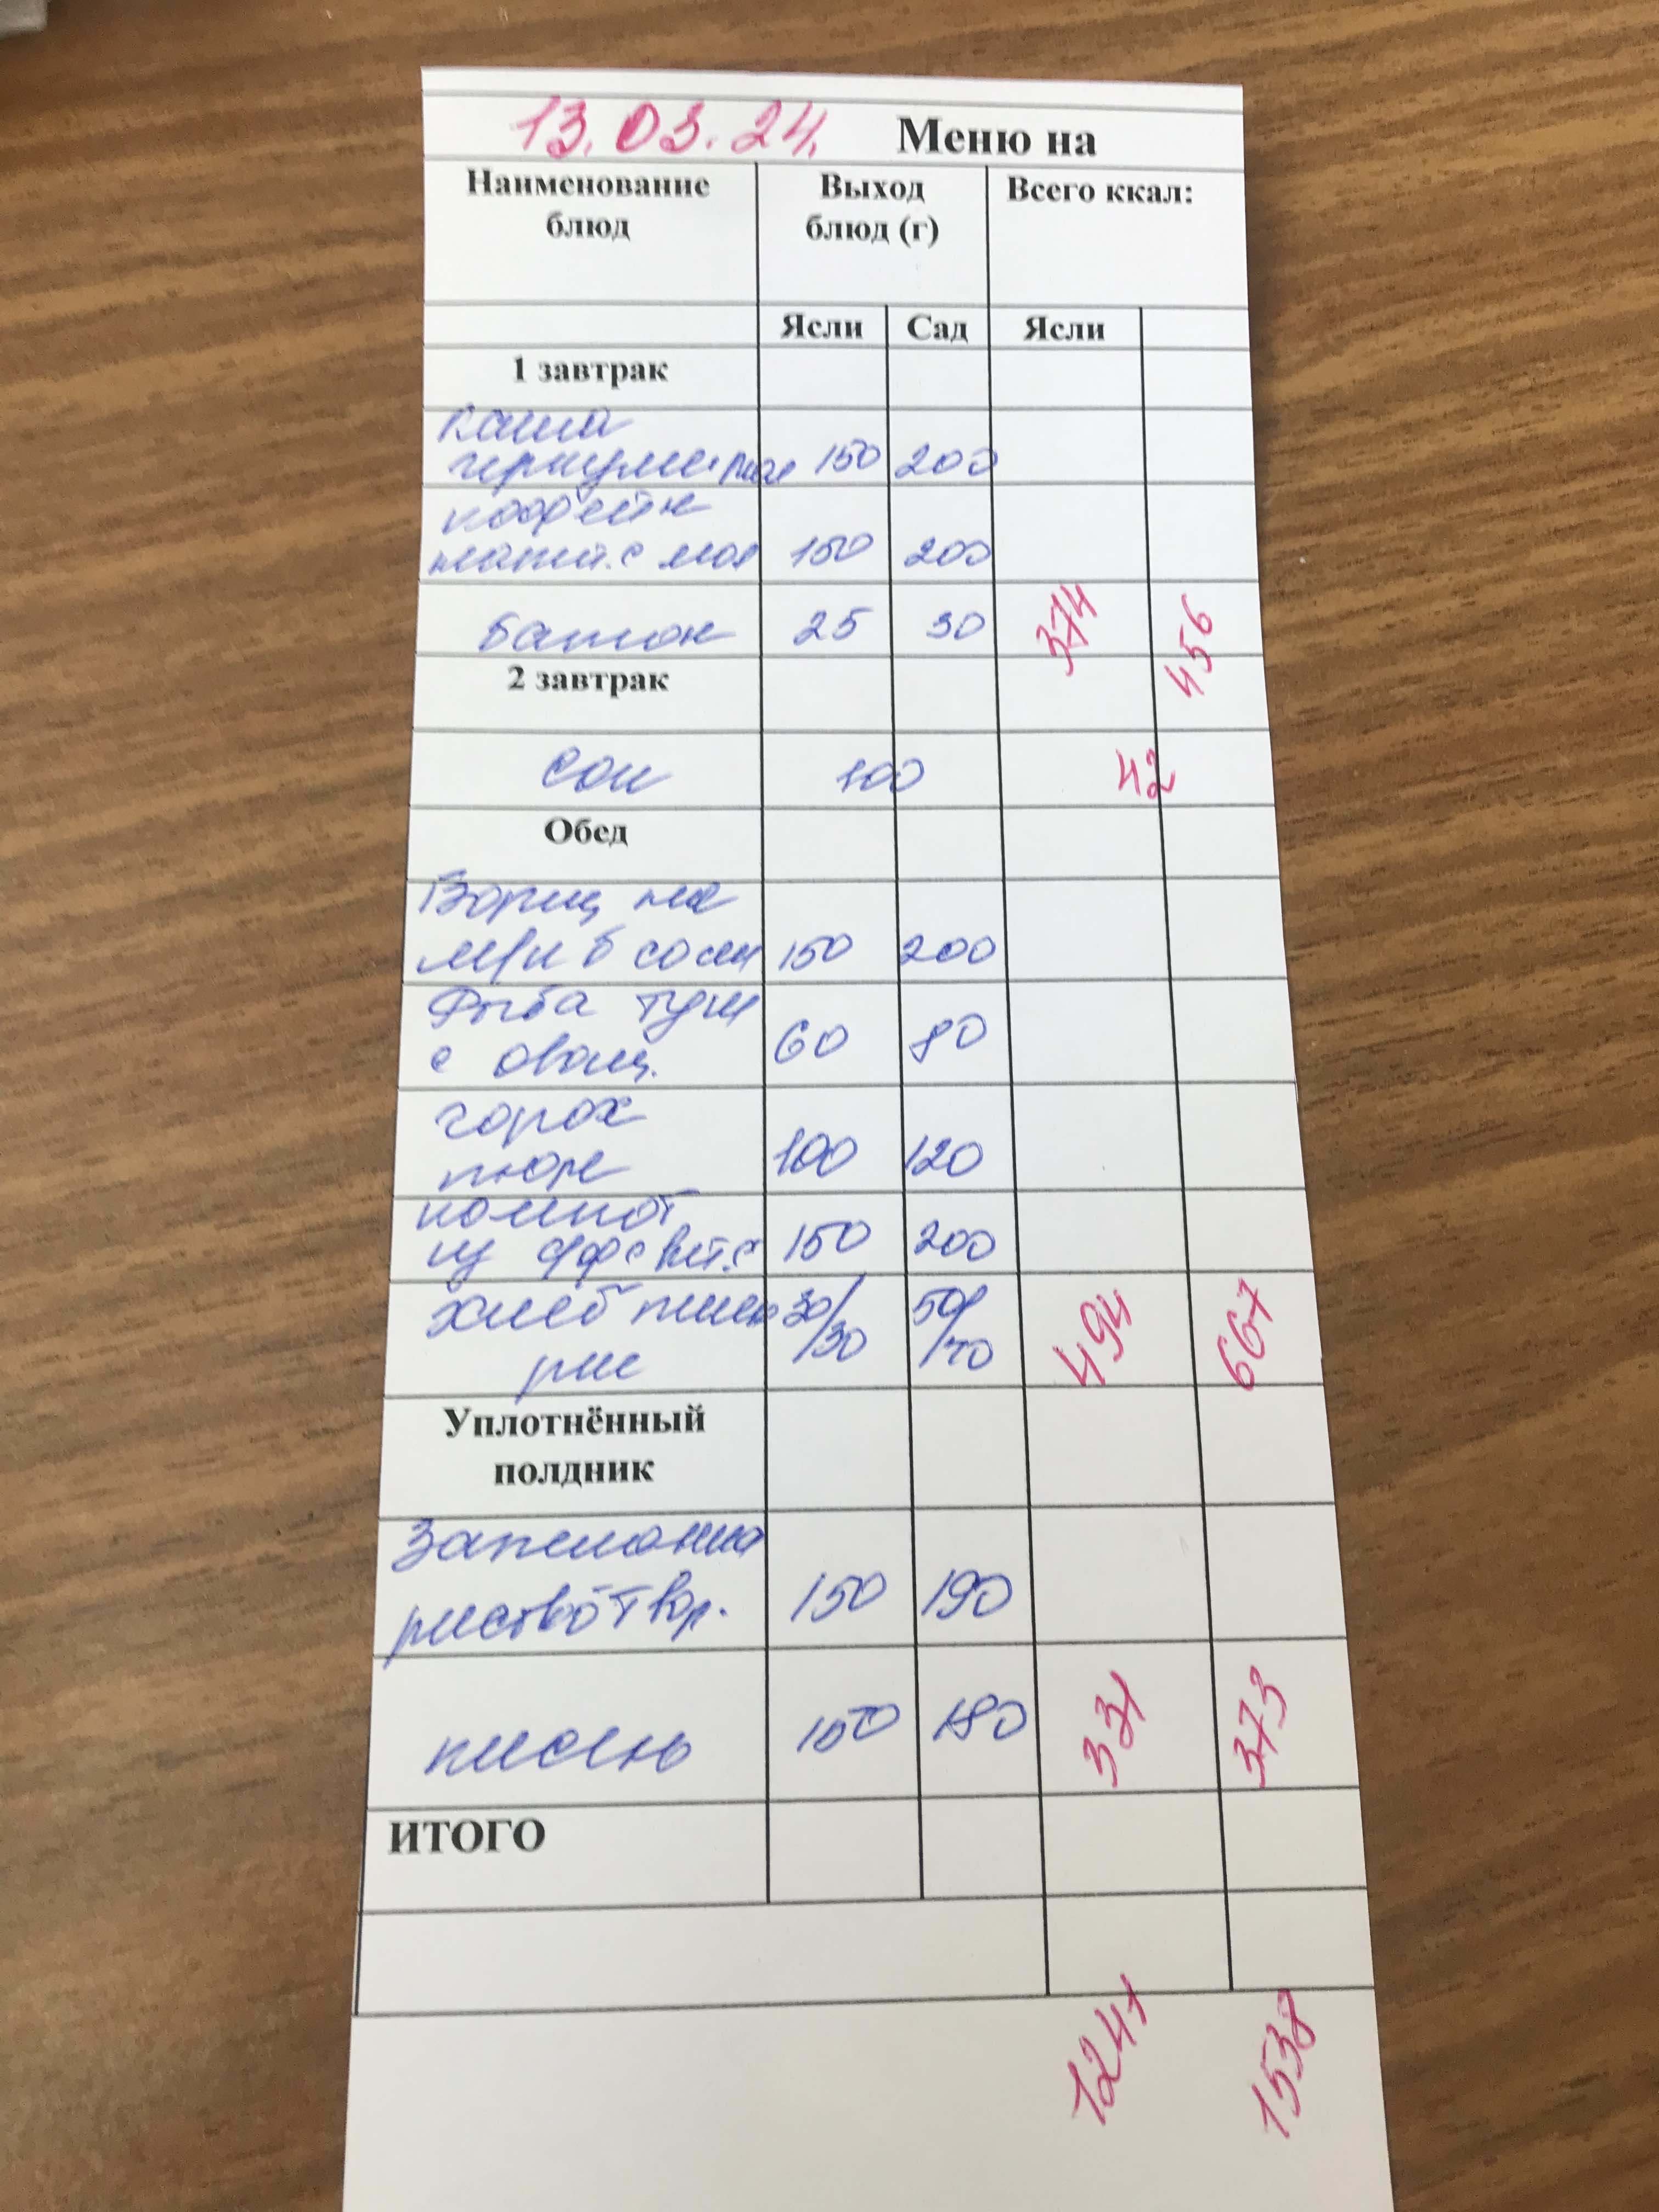 13.03.24. Меню на
Наименование Выход Всего ккал:
блюд блюд (г)
Ясли Сад Ясли
1 завтрак
Каша
150 200
кофейн
напит. с мол 150 200
батон 25 30 374 456
2 завтрак
сок 100 42
Обед
Борщ на
м/к б со см 150 200
Рыба туш
с овощ. 60 80
горох
пюре 100 120
компот
из с/ф с вит.С 150 200
хлеб пшен 30/30 50/40 494 667
рж
Уплотнённый
полдник
Запеканка
рисово твор. 150 190
кисель 150 180 331 373
ИТОГО
1241 1538